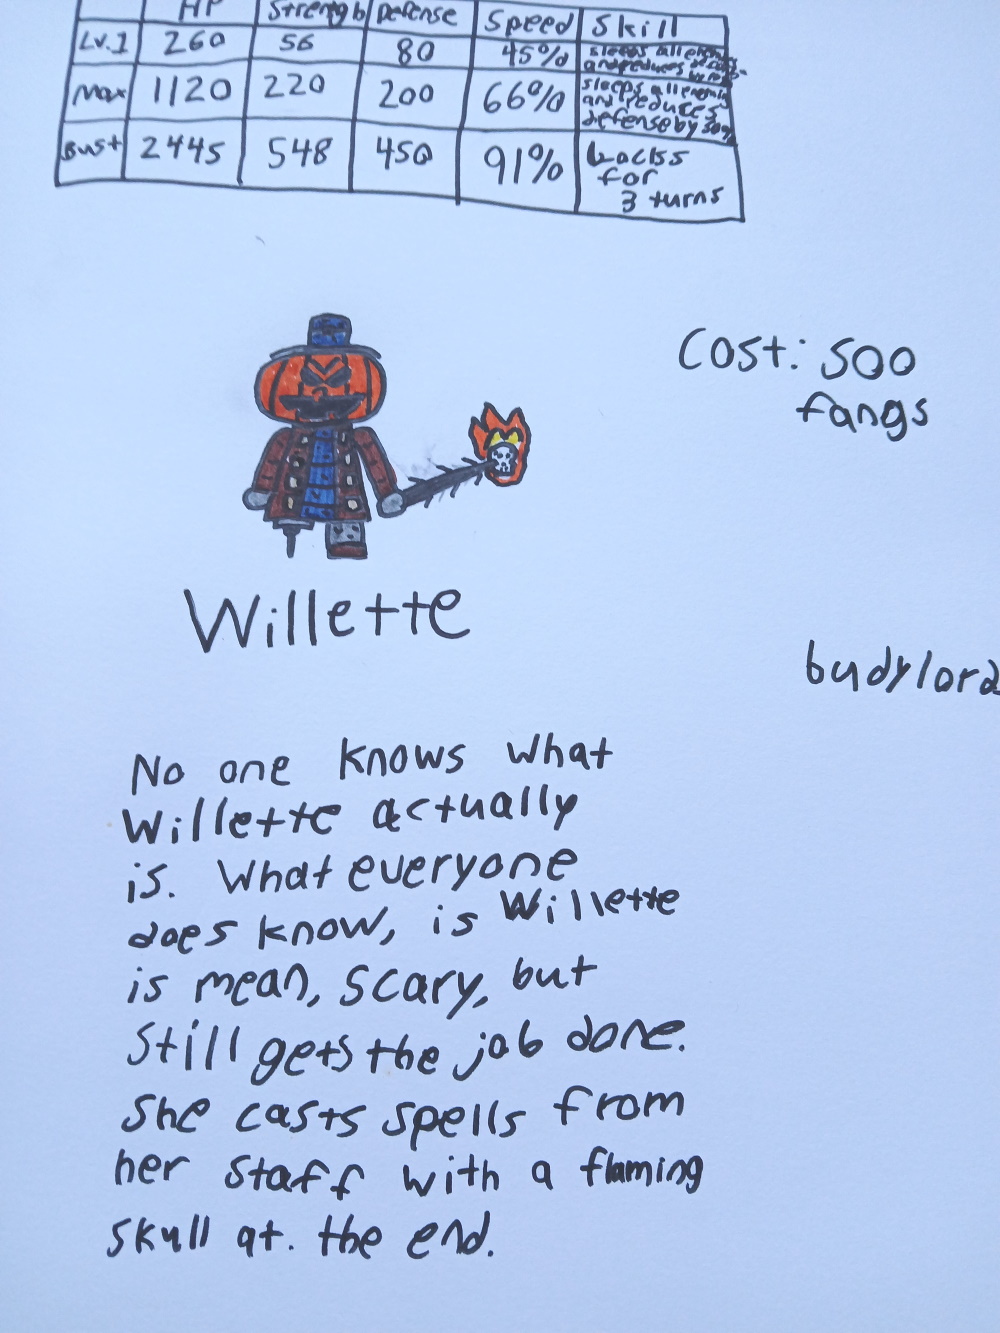 HP Strength Defense Speed Skill
Lv.1 260 56 80 45% sleeps all enemies and reduces
Max 1120 220 200 66% sleeps all enemies
and reduces
defense by 30%
Bust 2445 548 450 91% Locks
for
3 turns
Cost: 500
fangs
Willette
budylord
No one knows what
Willette actually
is. What everyone
does know, is Willette
is mean, scary, but
still gets the job done.
She casts spells from
her staff with a flaming
skull at. the end.